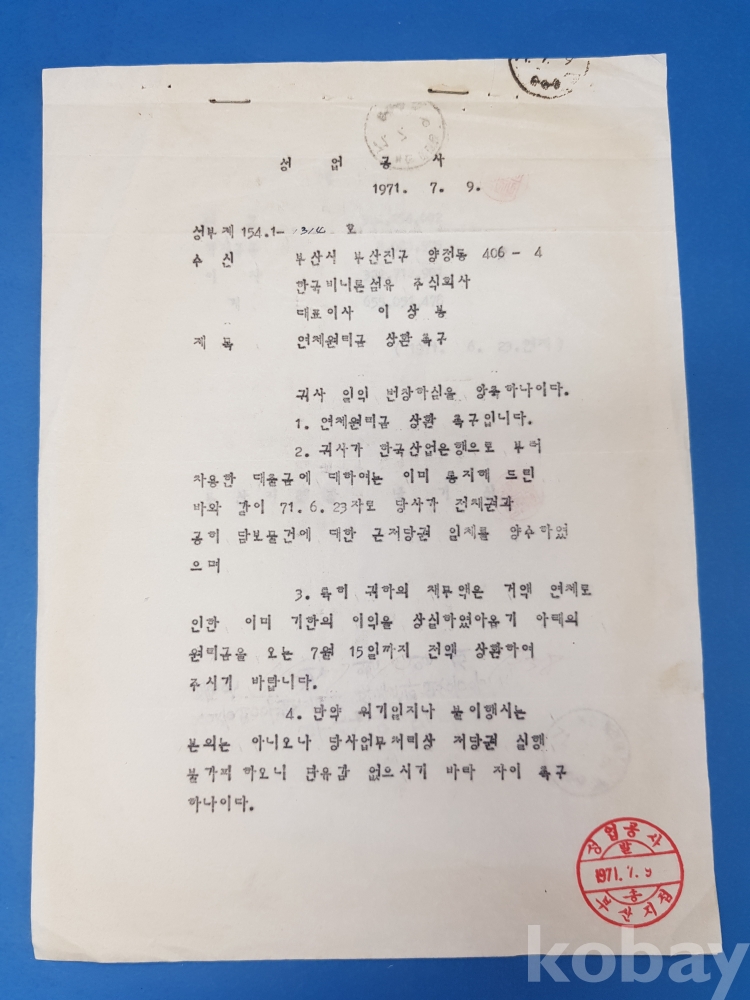 성 업 공 사
1971. 7. 9.
성부 제 154.1- 호
수 신 부산시 부산진구 양정동 406 - 4
한국비니론섬유 주식회사
대표이사 이 상 봉
제 목 연체원리금 상환 촉구
귀사 일익 번창하심을 앙축하나이다.
1. 연체원리금 상환 촉구입니다.
2. 귀사가 한국산업은행으로 부터
차용한 대출금에 대하여는 이미 통지해 드린
바와 같이 71.6.23자로 당사가 전채권과
공히 담보물건에 대한 근저당권 일체를 양수하였
으며
3. 특히 귀하의 채무액은 거액 연체로
인한 이미 기한의 이익을 상실하였아옵기 아래의
원리금을 오는 7월 15일까지 전액 상환하여
주시기 바랍니다.
4. 만약 위기일지나 불이행시는
본의는 아니오나 당사업무처리상 저당권 실행
불가피 하오니 단유감 없으시기 바라 자이 촉구
하나이다.
성업공사
발
1971. 7. 9
송
부산지점
kobay